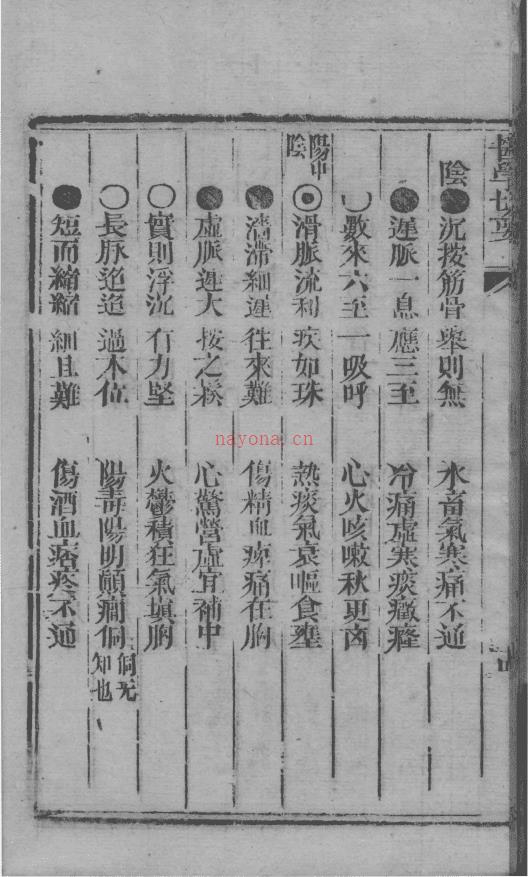 醫學切要
陰●沉按筋骨舉則無 水畜氣寒痛不通
●遲脈一息應三至 冷痛虛寒痰癥癃
○數來六至一吸呼 心火咳嗽秋更卤
陽中陰◉滑脈流利疾如珠 熱痰氣哀嘔食壅
●濇滯細遲往來難 傷精血痺痛在胸
●虛脈遲大按之鬆 心驚營虛宜補中
○實則浮沉有力堅 火鬱積狂氣塡胸
○長脉迢迢過本位 陽毒陽明顛癎侗侗无知也
●短而縮縮細且難 傷酒血瘩疼不通
nayona.cn